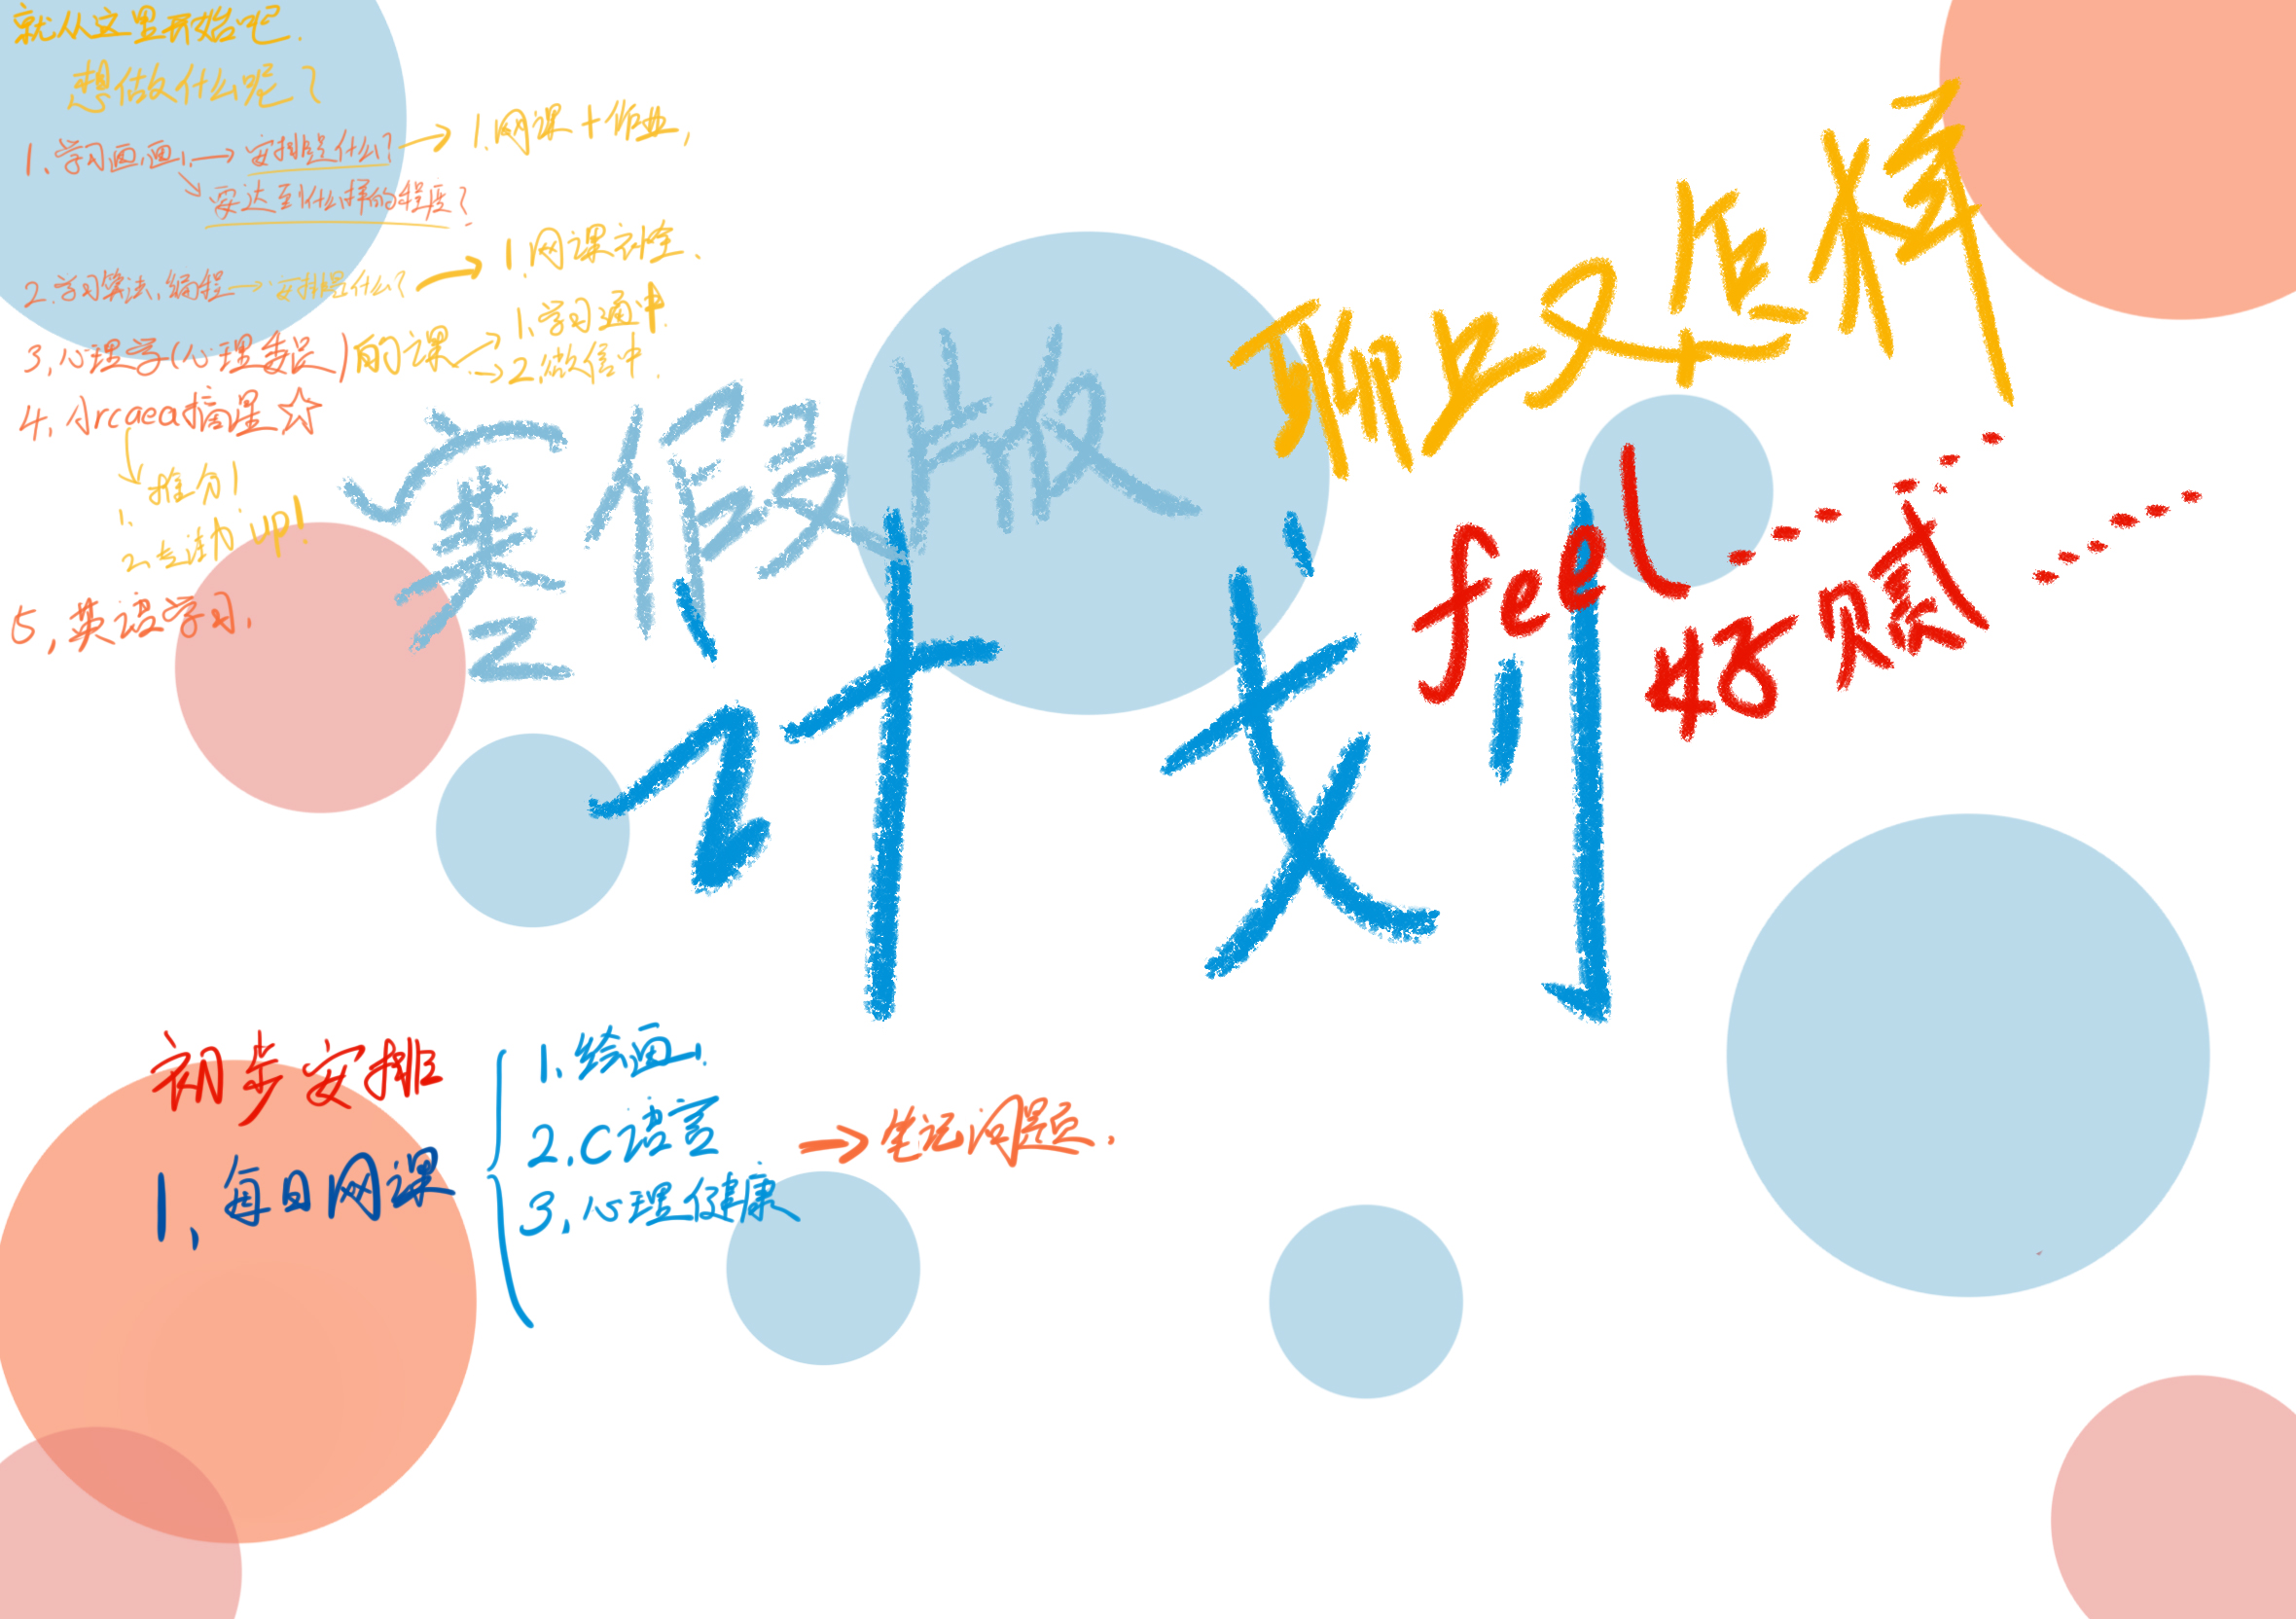 就从这里开始吧.
想做什么呢?
1、学习画画, → 安排是什么? → 1.网课+作业,
要达到什么样的程度?
2.学习算法、编程 → 安排是什么? → 1.网课
3,心理学(心理委员)的课 → 1、学习通中.
→ 2.微信中.
4,小rcaea摘星☆
1、推分!
2、专注力up!
5,英语学习,
寒假版
计划
聊上又怎样
feel......
好腻......
初步安排
1、每日网课
1、绘画,
2.C语言 → 笔记问题.
3,心理健康